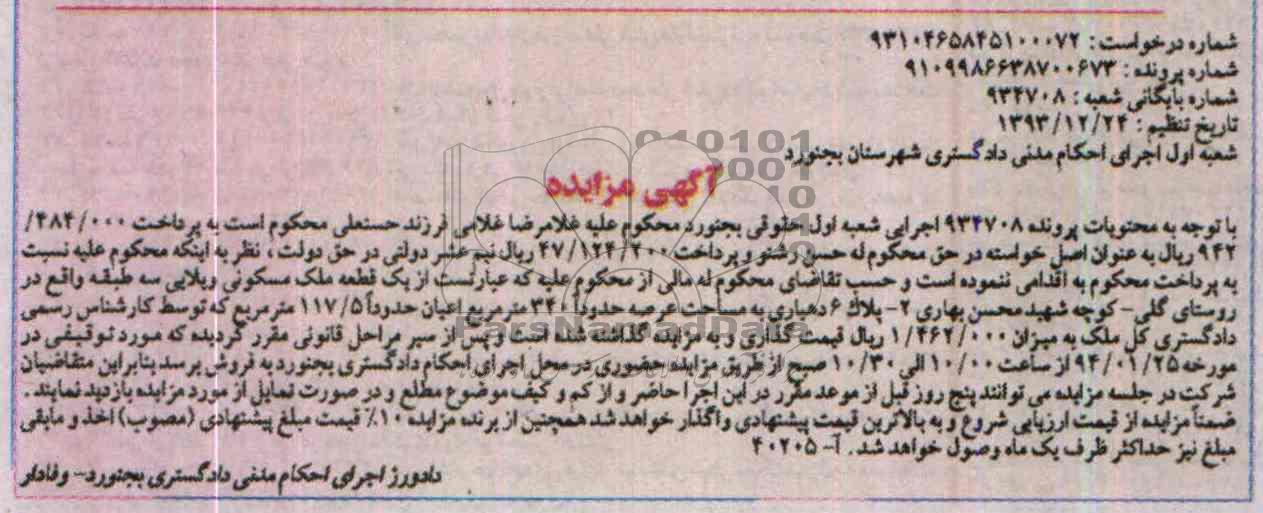 شماره درخواست: ۹۳۱۰۴۶۵۸۴۵۱۰۰۰۷۲
شماره پرونده: ۹۱۰۹۹۸۶۶۳۸۷۰۰۶۷۳
شماره بایگانی شعبه: ۹۳۴۷۰۸
تاریخ تنظیم: ۱۳۹۳/۱۲/۲۴
شعبه اول اجرای احکام مدنی دادگستری شهرستان بجنورد
آگهی مزایده
با توجه به محتویات پرونده ۹۳۴۷۰۸ اجرایی شعبه اول حقوقی بجنورد محکوم علیه غلامرضا غلامی فرزند حسنعلی محکوم است به پرداخت ۴۸۴/۰۰۰/
۹۴۲ ریال به عنوان اصل خواسته در حق محکوم له حسن رشنو و پرداخت ۴۷/۱۲۴/۲۰۰ ریال نیم عشر دولتی در حق دولت، نظر به اینکه محکوم علیه نسبت
به پرداخت محکوم به اقدامی ننموده است و حسب تقاضای محکوم له مالی از محکوم علیه که عبارتست از یک قطعه ملک مسکونی ویلایی سه طبقه واقع در
روستای گلی- کوچه شهید محسن بهاری ۲- پلاك ۶ دهیاری به مساحت عرصه حدوداً ۳۴۰ مترمربع اعیان حدوداً ۱۱۷/۵ مترمربع که توسط کارشناس رسمی
دادگستری کل ملک به میزان ۱/۴۶۲/۰۰۰ ریال قیمت گذاری و به مزایده گذاشته شده است و پس از سیر مراحل قانونی مقرر گردیده که مورد توقیفی در
مورخه ۹۴/۰۱/۲۵ از ساعت ۱۰/۰۰ الی ۱۰/۳۰ صبح از طریق مزایده حضوری در محل اجرای احکام دادگستری بجنورد به فروش برسد بنابراین متقاضیان
شرکت در جلسه مزایده می توانند پنج روز قبل از موعد مقرر در این اجرا حاضر و از کم و کیف موضوع مطلع و در صورت تمایل از مورد مزایده بازدید نمایند.
ضمناً مزایده از قیمت ارزیابی شروع و به بالاترین قیمت پیشنهادی واگذار خواهد شد همچنین از برنده مزایده ۱۰٪ قیمت مبلغ پیشنهادی (مصوب) اخذ و مابقی
مبلغ نیز حداکثر ظرف یک ماه وصول خواهد شد. آ- ۴۰۲۰۵
دادورز اجرای احکام مدنی دادگستری بجنورد- وفادار
ParsNamadData